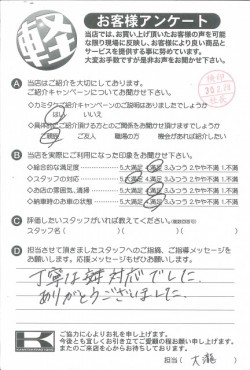 軽
お客様アンケート
当店では、お買い上げ頂いたお客様の声を可能
な限り現場に反映し、お客様により良い商品と
サービスを提供する事に努めています。
大変お手数ですが是非お声をお聞かせ下さい。
A 当店はご紹介を大切にしております。
ご紹介キャンペーンについてお聞かせ下さい。
◇カミタケご紹介キャンペーンのご説明はありましたでしょうか
はい いいえ
ご紹介頂ける方とのご関係をお聞かせ下さい
ご親族 ご友人 職場の方 機会があれば紹介したい
B 当店を実際にご利用になった印象をお聞かせ下さい。
◇総合的な満足度 5.大満足 4.満足 3.ふつう 2.やや不満 1.不満
◇スタッフの対応 5.大満足 4.満足 3.ふつう 2.やや不満 1.不満
◇お店の雰囲気、清掃 5.大満足 4.満足 3.ふつう 2.やや不満 1.不満
◇納車時のお車の状態 5.大満足 4.満足 3.ふつう 2.やや不満 1.不満
C 評価したいスタッフがいれば教えてください。
スタッフ名( )( )( )
D 担当させて頂きましたスタッフへのご指摘、ご指導メッセージを
お願いします。応援メッセージもぜひお願いします。
丁寧な対応でした。
ありがとうございました。
K
ご協力に心よりお礼を申し上げます。
今後とも宜しくお引き立てご愛顧の程お願い申し上げます。
またのご来店を心からお待ちしております。
担当( 大瀧 )